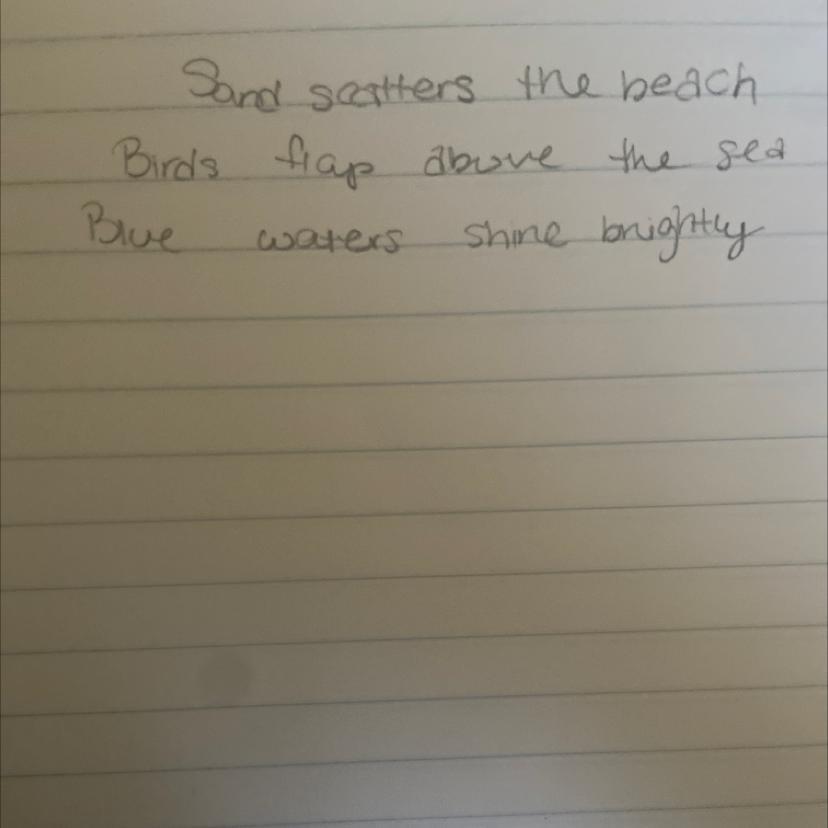 Sand scatters the beach
Birds flap above the sea
Blue waters shine brightly